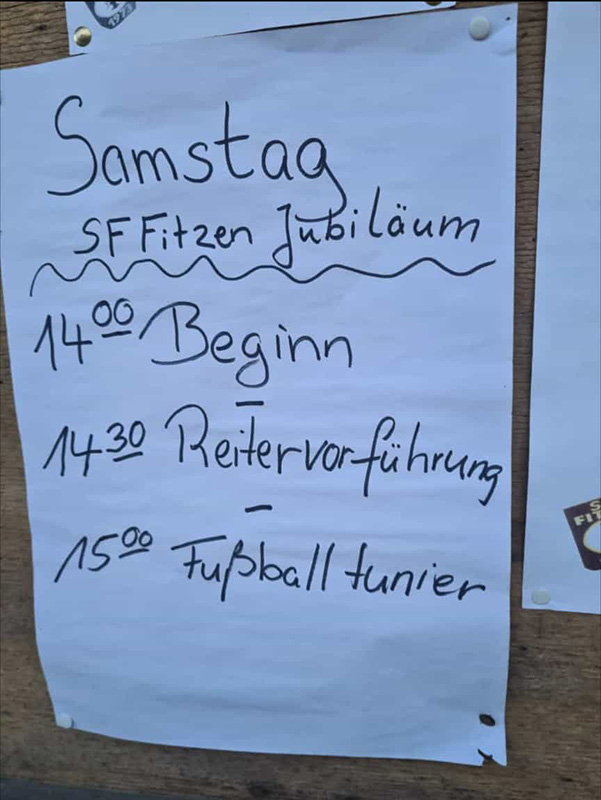 1973
Samstag
SF Fitzen Jubiläum
14⁰⁰ Beginn
–
14³⁰ Reitervorführung
–
15⁰⁰ Fußball tunier